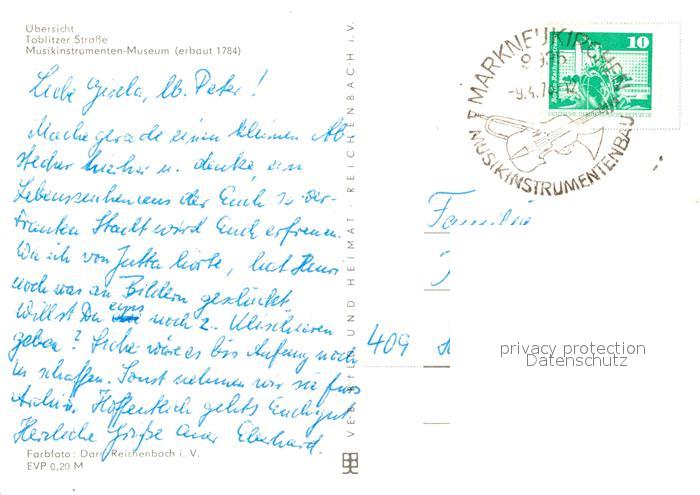 Übersicht
Toblitzer Straße
Musikinstrumenten-Museum (erbaut 1784)
Liebe Gisela, lb. Peter!
Mache gerade einen kleinen Ab-
stecher hierher u. denke, ein
Lebenszeichen aus der Euch so ver-
trauten Stadt wird Euch erfreuen.
Wie ich von Jutta hörte, hat
noch was an Bildern geschickt
willst Du noch z. Klischieren
geben? Sicher wäre es bis Anfang noch
zu schaffen. Sonst nehmen wir sie fürs
Archiv. Hoffentlich gehts Euch gut.
Herzliche Grüße Euer Eberhard.
Farbfoto: Darr, Reichenbach i. V.
EVP 0,20 M
VERLAG BILD UND HEIMAT REICHENBACH i. V.
MARKNEUKIRCHEN
-9.4.7
MUSIKINSTRUMENTENBAU
10
Familie
409
privacy protection
Datenschutz